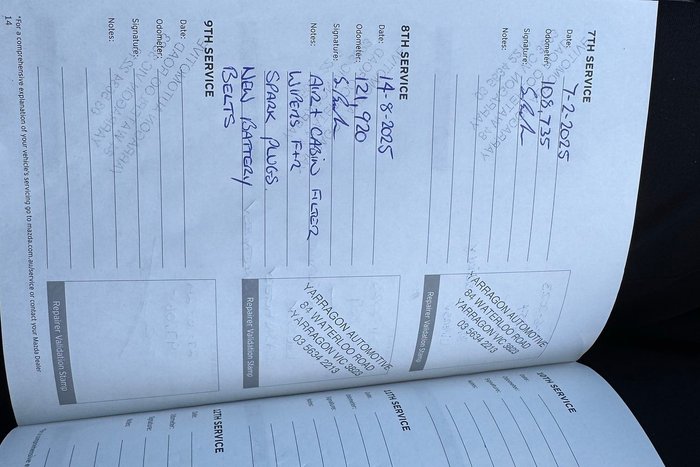 7TH SERVICE
Date: 7-2-2025
Odometer: 108,735
Signature:
Notes:
YARRAGON AUTOMOTIVE
84 WATERLOO ROAD
YARRAGON VIC 3823
03 5634 2213
Repairer Validation Stamp
8TH SERVICE
Date: 14-8-2025
Odometer: 121,920
Signature:
Notes: AIR + CABIN FILTER
WIPERS F+R
SPARK PLUGS
NEW BATTERY
BELTS
YARRAGON AUTOMOTIVE
84 WATERLOO ROAD
YARRAGON VIC 3823
03 5634 2213
Repairer Validation Stamp
9TH SERVICE
Date:
Odometer:
Signature:
Notes:
Repairer Validation Stamp
*For a comprehensive explanation of your vehicle's servicing go to mazda.com.au/service or contact your Mazda Dealer
14
10TH SERVICE
Date:
Odometer:
Signature:
Notes:
11TH SERVICE
Date:
Odometer:
Signature:
Notes:
12TH SERVICE
Date:
Odometer:
Signature:
Notes: